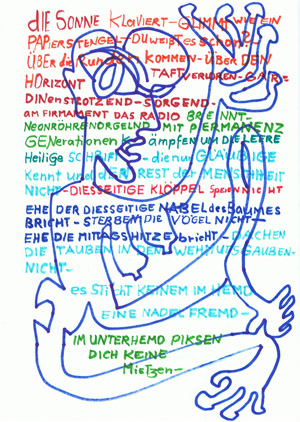 DIE SONNE KLaViERT-GLIMMT WIE EIN
PAPIERSTENGEL-DU WEIßT es schon?-
ÜBER die Runden KOMMEN-ÜBER DEN
HORIZONT TAFT VERLOREN-GAR-
DINENSTROTZEND-SORGEND-
AM FIRMAMENT DAS RADIO BRENNT-
NEONRÖHRENORGELND MIT PERMANENZ
GENerationen Kämpfen UM DIE LEERE
Heilige SCHRIFT-die nur GLÄUBIGE
Kennt und DER REST DER MENSCHHEIT
NICHT-DIESSEITIGE KLÖPPEL SpeieN NICHT
EHE DER DIESSEITIGE NABEL des BAUMES
BRICHT-STERBEN DIE VÖGEL NICHT-
EHE DIE MITTAGSHITZE bricHT-DACHEN
DIE TAUBEN IN DEN WEHMUTSGAUBEN-
NICHT-
es STICHT KEINEM IM HEMD
EINE NADEL FREMD-
IM UNTERHEMD PIKSEN
DICH KEINE
MieTzen-